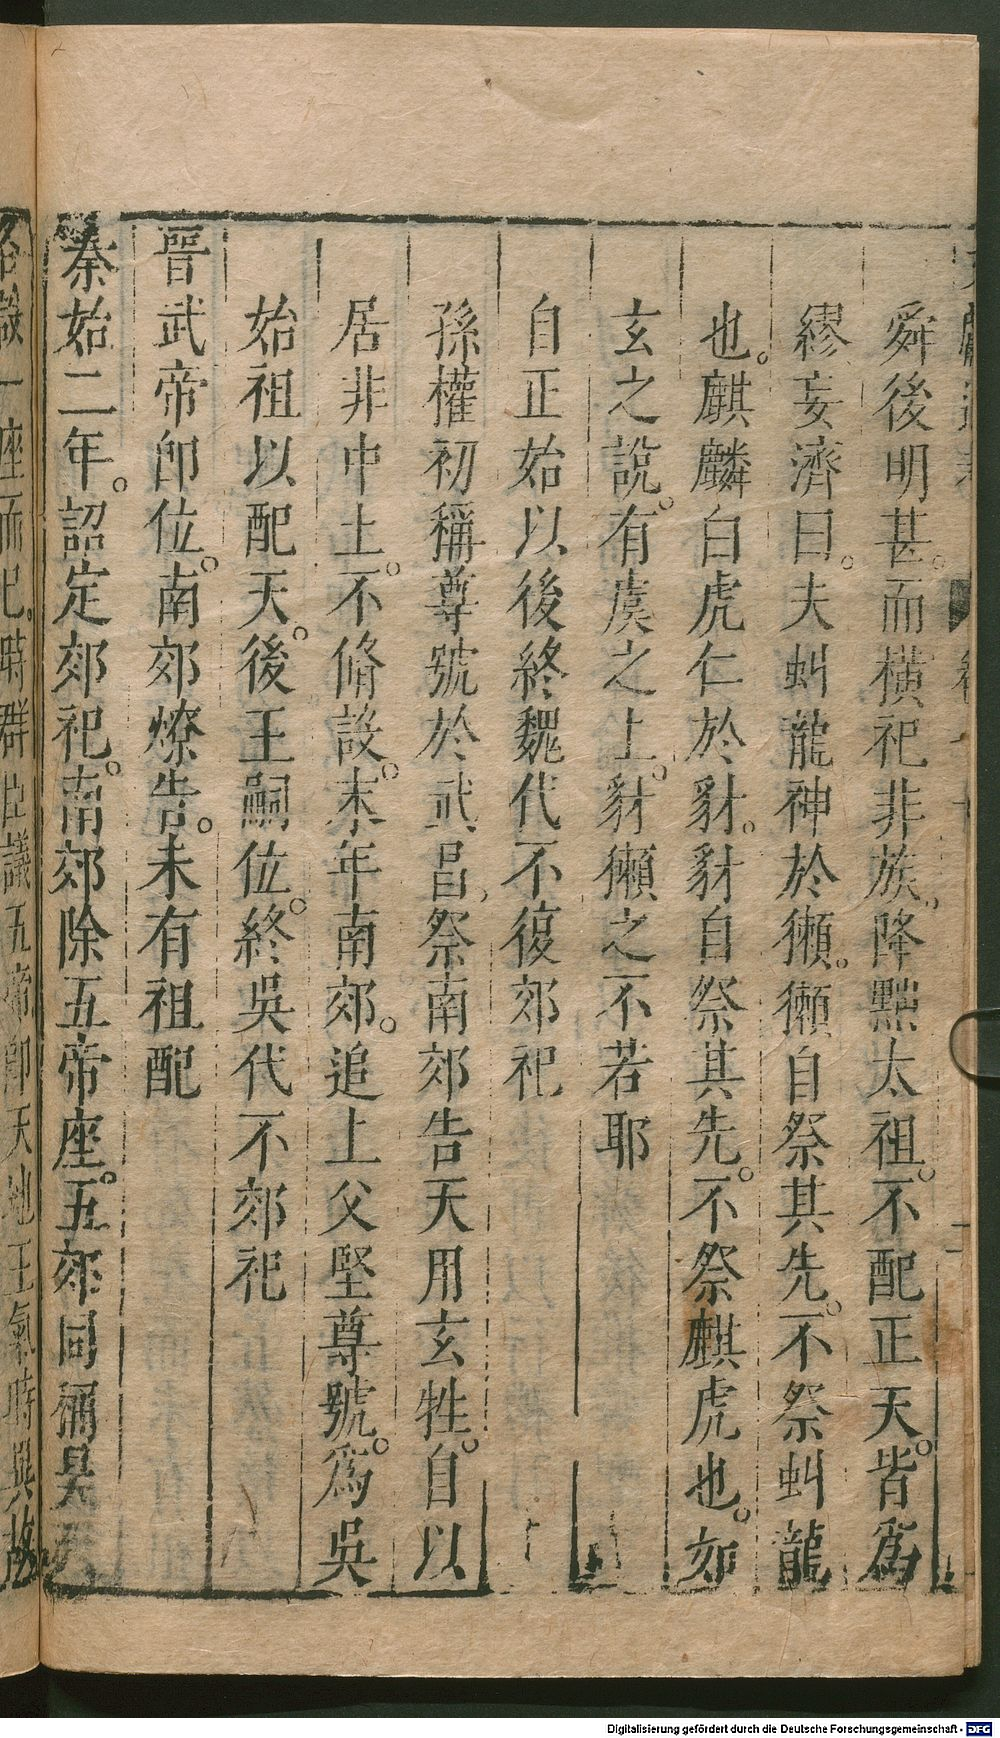 舜後明甚。而橫祀非族。降黜太祖。不配正天。皆爲
繆妄濟曰。夫虯龍神於獺。獺自祭其先。不祭虯龍
也。麒麟白虎仁於豺。豺自祭其先。不祭麒虎也。如
玄之說。有虞之上。豺獺之不若耶
自正始以後終魏代不復郊祀
孫權初稱尊號於武昌祭南郊告天用玄牲。自以
居非中土。不脩設。末年南郊。追上父堅尊號。爲吳
始祖以配天。後王嗣位。終吳代不郊祀
晉武帝卽位。南郊燎告。未有祖配
泰始二年。詔定郊祀。南郊除五帝座。五郊同稱昊天
各設一座而已。時群臣議五帝卽天地王氣時異故
Digitalisierung gefördert durch die Deutsche Forschungsgemeinschaft - DFG